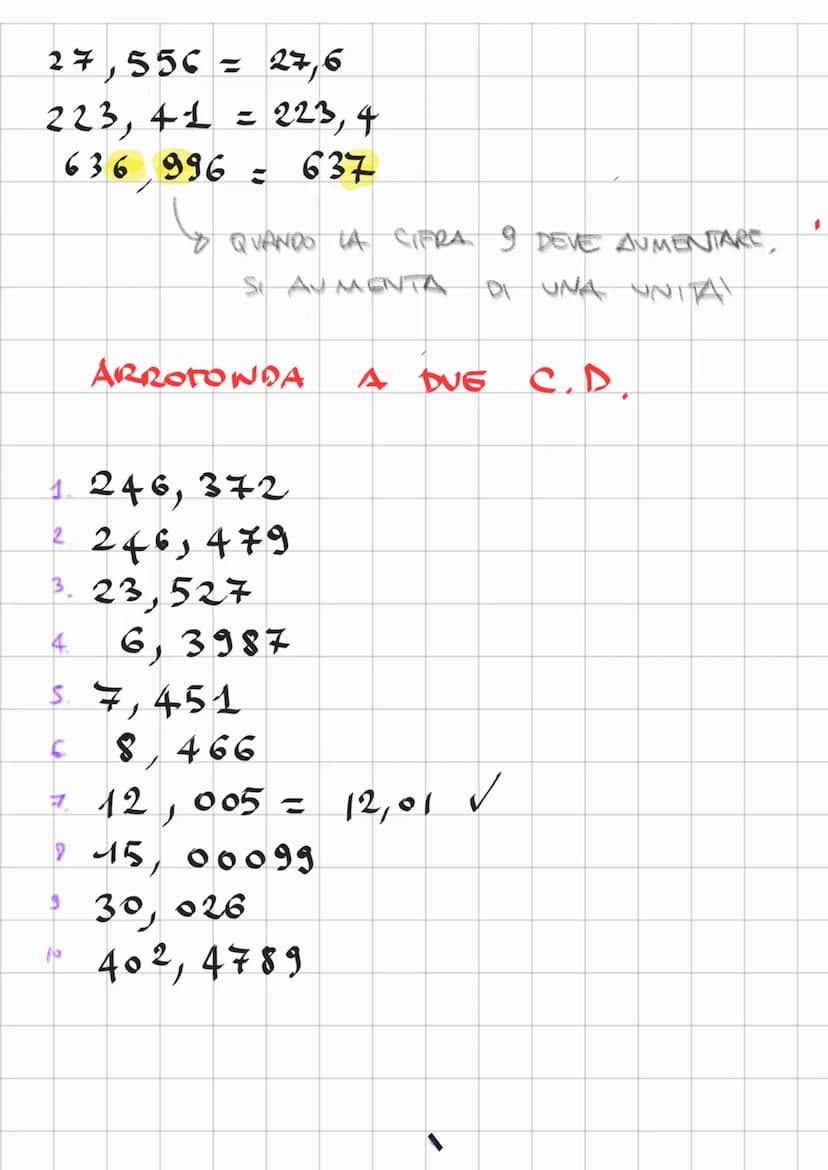 27,556 = 27,6
223,41 = 223,4
636,996 = 637
QUANDO LA CIFRA 9 DEVE AUMENTARE,
SI AUMENTA DI UNA UNITA'
ARROTONDA A DUE C.D.
1. 246,372
2 246,479
3. 23,527
4. 6,3987
5. 7,451
6 8,466
7. 12,005 = 12,01 ✓
8 15,00099
9 30,026
10 402,4789